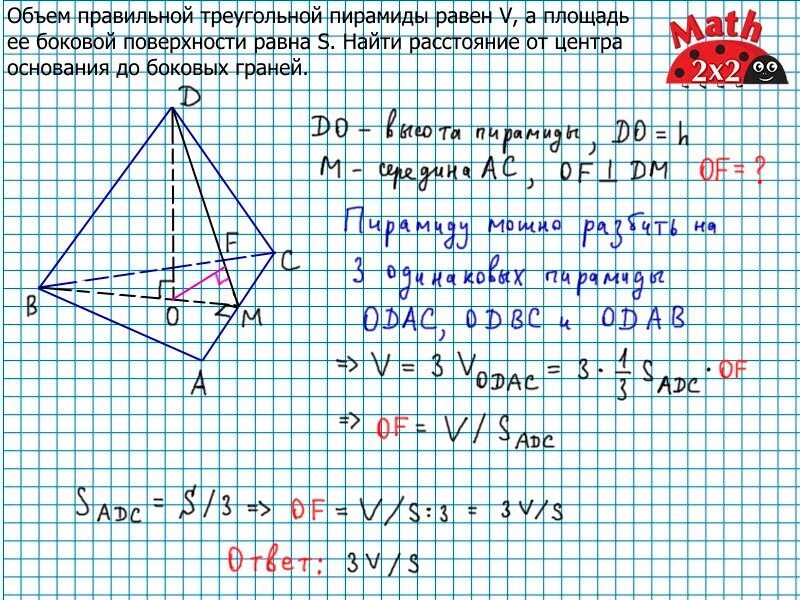 Объем правильной треугольной пирамиды равен V, а площадь
ее боковой поверхности равна S. Найти расстояние от центра
основания до боковых граней.
Math
2x2
D
F
C
B
O
M
A
DO - высота пирамиды, DO = h
M - середина AC, OF ⊥ DM OF = ?
Пирамиду можно разбить на
3 одинаковых пирамиды
ODAC, ODBC и ODAB
=> V = 3 V_ODAC = 3 · 1/3 S_ADC · OF
=> OF = V / S_ADC
S_ADC = S/3 => OF = V/S:3 = 3V/S
Ответ: 3V/S